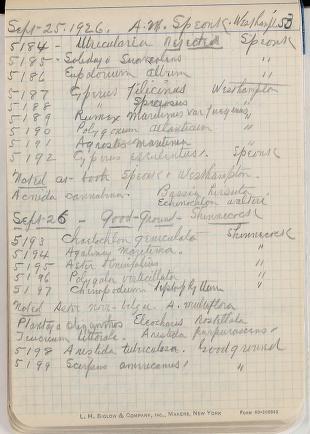 Sept-25. 1926. A.M. Speonk, Westhampton 53
5184 - Utricularia Speonk
5185 - Solidago "
5186 Eupatorium album "
5187 Cyperus filicinus Westhampton
5188 " "
5189 Rumex Maritimus var. fueginus "
5190 Polygonum atlanticum "
5191 Agrostis maritima "
5192 Cyperus esculentus. Speonk
Noted as- both Speonk & Westhampton.
Acnida cannabina. Bassia hirsuta.
Echinochloa walteri
Sept-26 - Good-Ground - Shinnecock
5193 geniculata Shinnecock
5194 Agalinis maritima. "
5195 Aster "
5196 Polygala verticillata "
5197 Chenopodium "
Noted Aster novi-belgii A. multiflora
Plantago Eleocharis rostellata
Teucrium littorale. Aristida purpurascens
5198 Aristida tuberculosa. Good ground
5199 Scirpus americanus "
L. H. BIGLOW & COMPANY, INC., MAKERS, NEW YORK